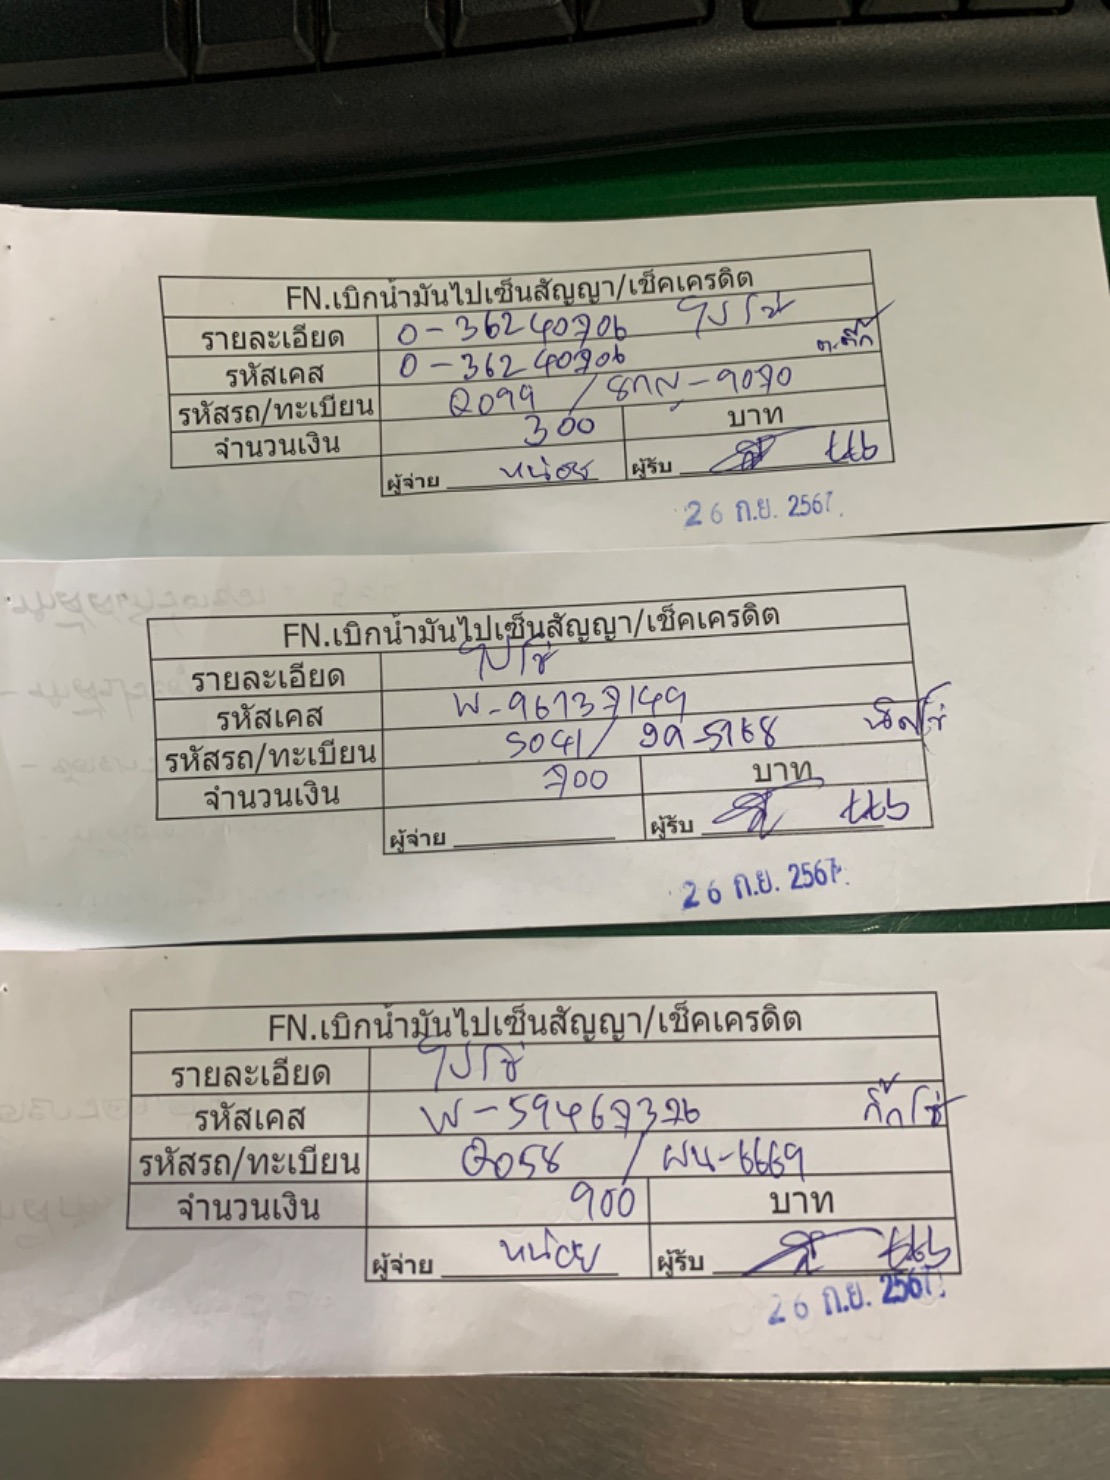 FN.เบิกน้ำมันไปเซ็นสัญญา/เช็คเครดิต
รายละเอียด 0-36240706 ไปโช่
รหัสเคส 0-36240706
รหัสรถ/ทะเบียน Q099 / 8กญ-9070
จำนวนเงิน 300 บาท
ผู้จ่าย หน่อย ผู้รับ
26 ก.ย. 2567
FN.เบิกน้ำมันไปเซ็นสัญญา/เช็คเครดิต
รายละเอียด ไปโช่
รหัสเคส W-96137149
รหัสรถ/ทะเบียน S041/ 5168
จำนวนเงิน 700 บาท
ผู้จ่าย ผู้รับ
26 ก.ย. 2567
FN.เบิกน้ำมันไปเซ็นสัญญา/เช็คเครดิต
รายละเอียด ไปโช่
รหัสเคส W-59467376 กิ๊กโช่
รหัสรถ/ทะเบียน Q058 / ผน-6669
จำนวนเงิน 900 บาท
ผู้จ่าย หน่อย ผู้รับ
26 ก.ย. 2567